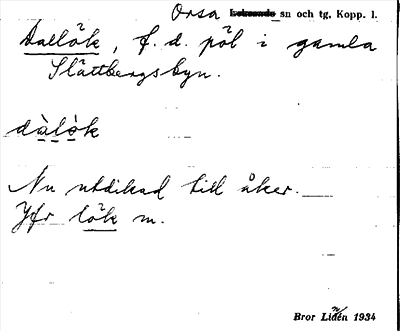 Orsa Leksands sn och tg. Kopp. l.
Dallök, f. d. pöl i gamla
Slättbergsbyn.
dàlòk
Nu utdikad till åker.
Jfr lök m.
Bror Lidén 1934